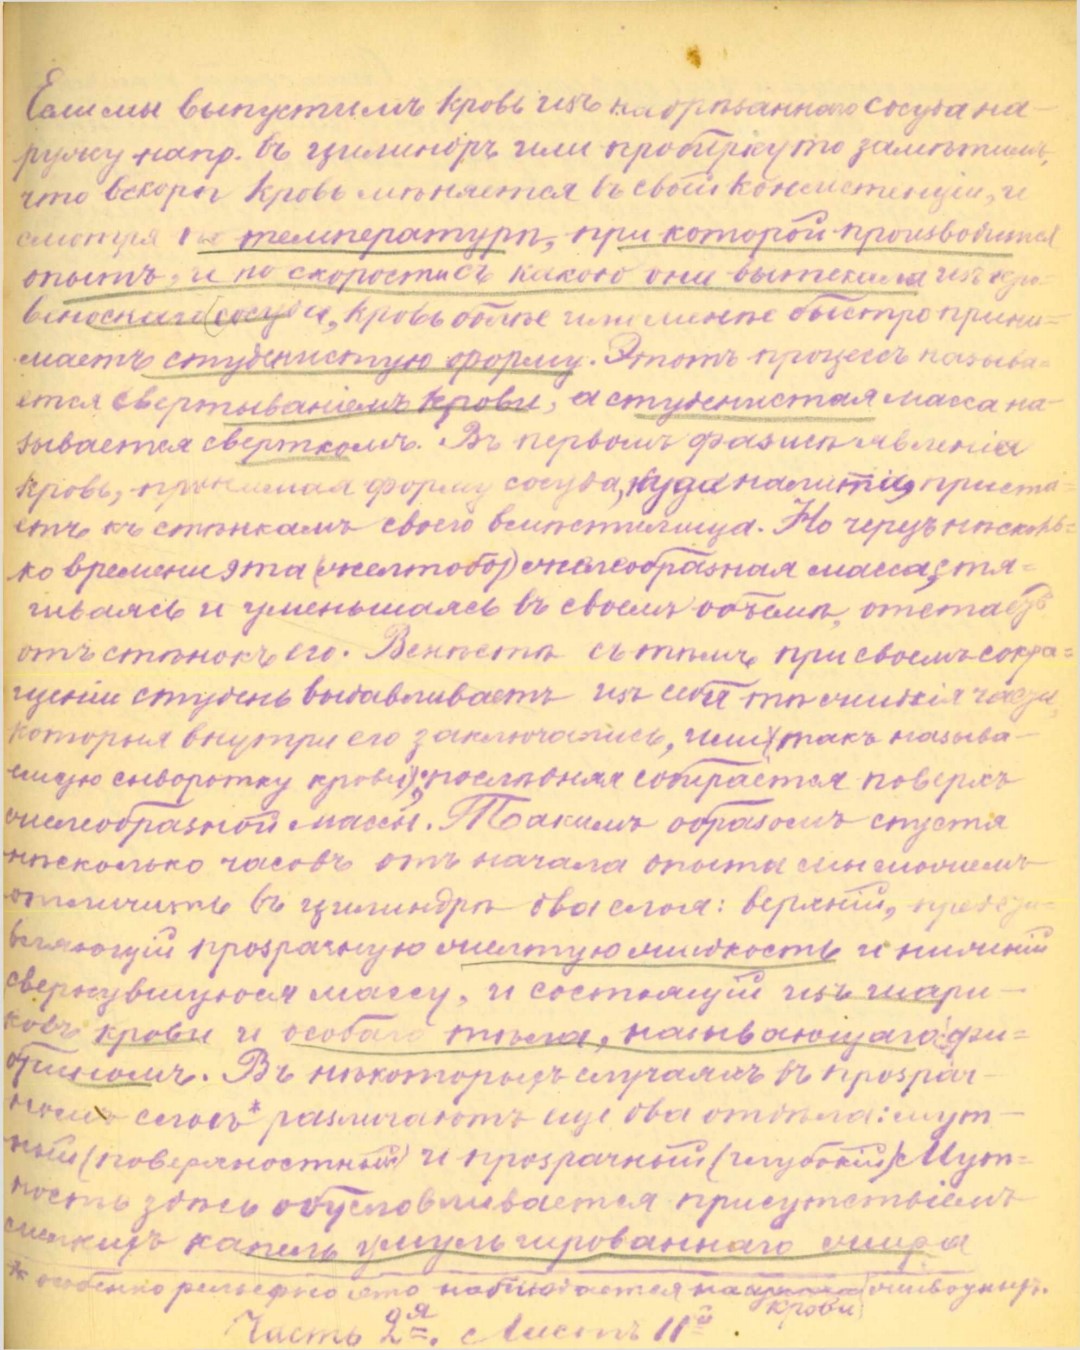 Если мы выпустимъ кровь изъ надрѣзаннаго сосуда на-
ружу напр. въ цилиндръ или пробирку то замѣтимъ,
что вскорѣ кровь мѣняется въ своей консистенціи, и
смотря по температурѣ, при которой производится
опытъ, и по скорости съ какою она вытекала изъ кро-
веноснаго (сосуда, кровь болѣе или менѣе быстро прини-
маетъ студенистую форму. Этотъ процессъ называ-
ется свертываніемъ крови, а студенистая масса на-
зывается сверткомъ. Въ первомъ фазисѣ явленія
кровь, принимая форму сосуда, куда налита, приста-
етъ къ стѣнкамъ своего вмѣстилища. Но черезъ нѣсколь-
ко времени эта (желтобор) желеобразная масса, стя-
гиваясь и уменьшаясь въ своемъ объемѣ, отстаетъ
отъ стѣнокъ его. Вмѣстѣ съ тѣмъ при своемъ сокра-
щеніи студень выдавливаетъ изъ себя тѣ жидкія части,
которыя внутри его заключались, или (такъ называ-
емую сыворотку крови); послѣдняя собирается поверхъ
желеобразной массы. Такимъ образомъ спустя
нѣсколько часовъ отъ начала опыта мы можемъ
отличить въ цилиндрѣ два слоя: верхній, предста-
вляющій прозрачную желтую жидкость и нижній
свернувшуюся массу, и состоящій изъ шари-
ковъ крови и особаго тѣла, называющаго фи-
бриномъ. Въ нѣкоторыхъ случаяхъ въ прозрач-
номъ слоѣ* различаютъ еще два отдѣла: мут-
ный (поверхностный) и прозрачный (глубокій). Мут-
ность здѣсь обусловливается присутствіемъ
мелкихъ капель эмульгированнаго жира
* особенно рельефно это наблюдается на крови животныхъ.
Часть 2я. Листъ 11й